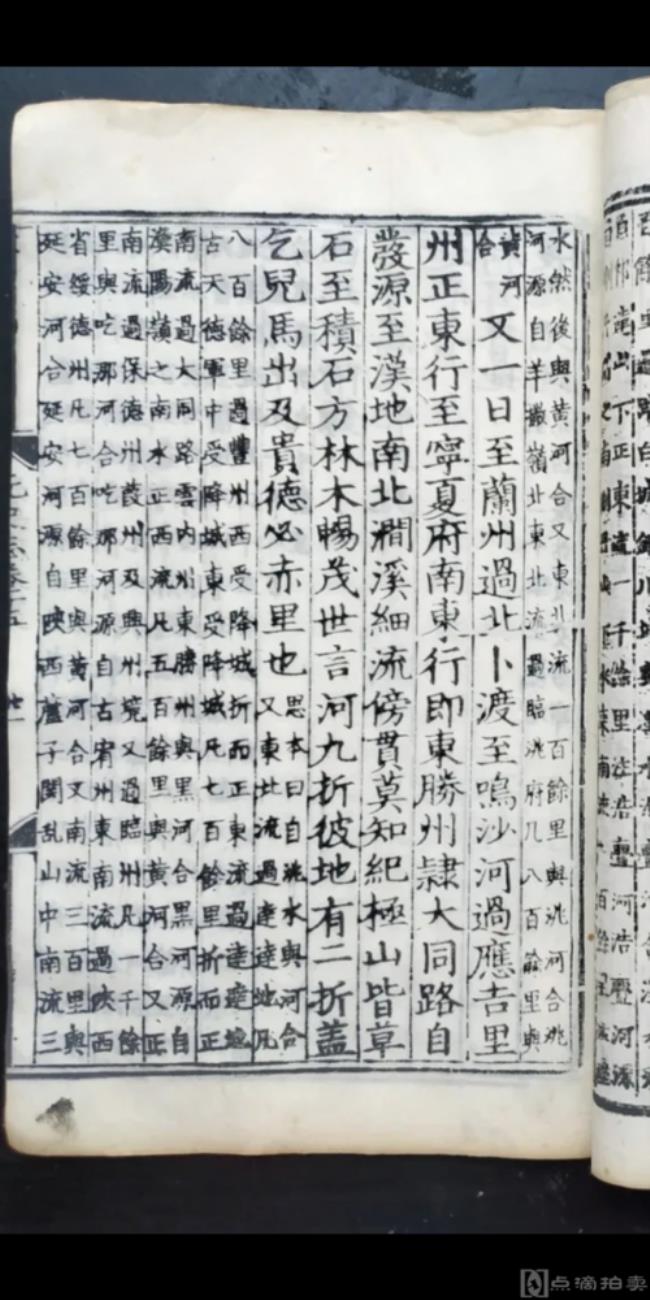 水然後與黃河合又東北流一百餘里與洮河合洮
河源自羊撒嶺北東北流過臨洮府凡八百餘里與
黃河
合
又一日至蘭州過北卜渡至鳴沙河過應吉里
州正東行至寧夏府南東行即東勝州隷大同路自
發源至漢地南北澗溪細流傍貫莫知紀極山皆草
石至積石方林木暢茂世言河九折彼地有二折盖
乞兒馬出及貴德必赤里也
思本曰自洮水與河合
又東北流過達達地凡
八百餘里過豐州西受降城折而正東流過達達地
古天德軍中受降城東受降城凡七百餘里折而正
南流過大同路雲内州東勝州與黑河合黑河源自
漁陽嶺之南水正西流凡五百餘里與黃河合又正
南流過保德州葭州及興州境又過臨州凡一千餘
里與吃那河合吃那河源自古宥州東南流過陝西
省綏德州凡七百餘里與黃河合又南流三百里與
延安河合延安河源自陝西蘆子關乱山中南流三
点滴拍卖